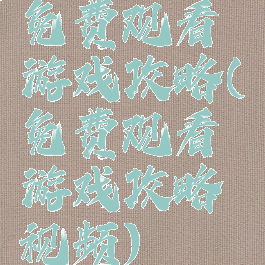 免费观看
游戏攻略(
免费观看
游戏攻略
视频)